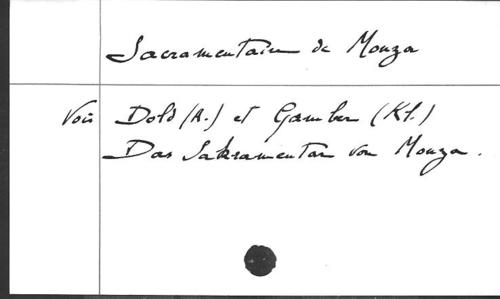 Sacramentaire de Monza
Voir Dold (A.) et Gamber (Kl.)
Das Sakramentar von Monza.